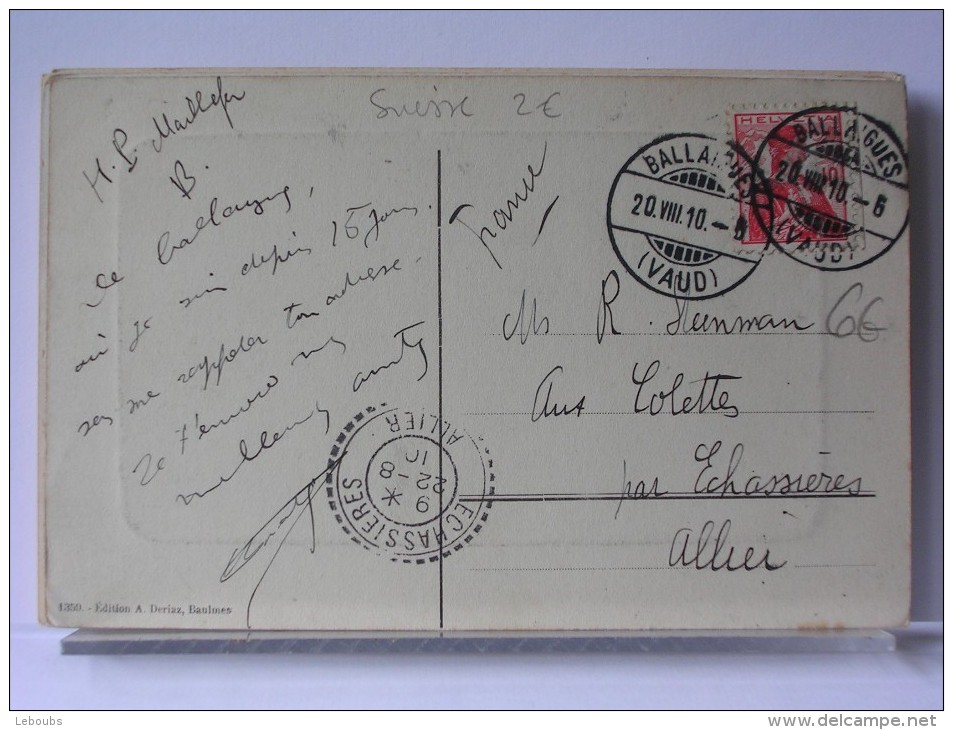 Suisse 2€
H. P. Maillefer
B.
de Ballaigues,
où je suis depuis 15 jours.
me rappeler ton adresse.
Je t'envoie mes
meilleures amitiés
1350. - Édition A. Deriaz, Baulmes
France
HELVETIA
BALLAIGUES
20.VIII.10.-6
(VAUD)
BALLAIGUES
20.VIII.10.-6
(VAUD)
Mr R. Heenman
6€
Aux Colettes
par Echassières
Allier
ECHASSIERES
ALLIER
22 - 8
10
Leboubs
www.delcampe.net